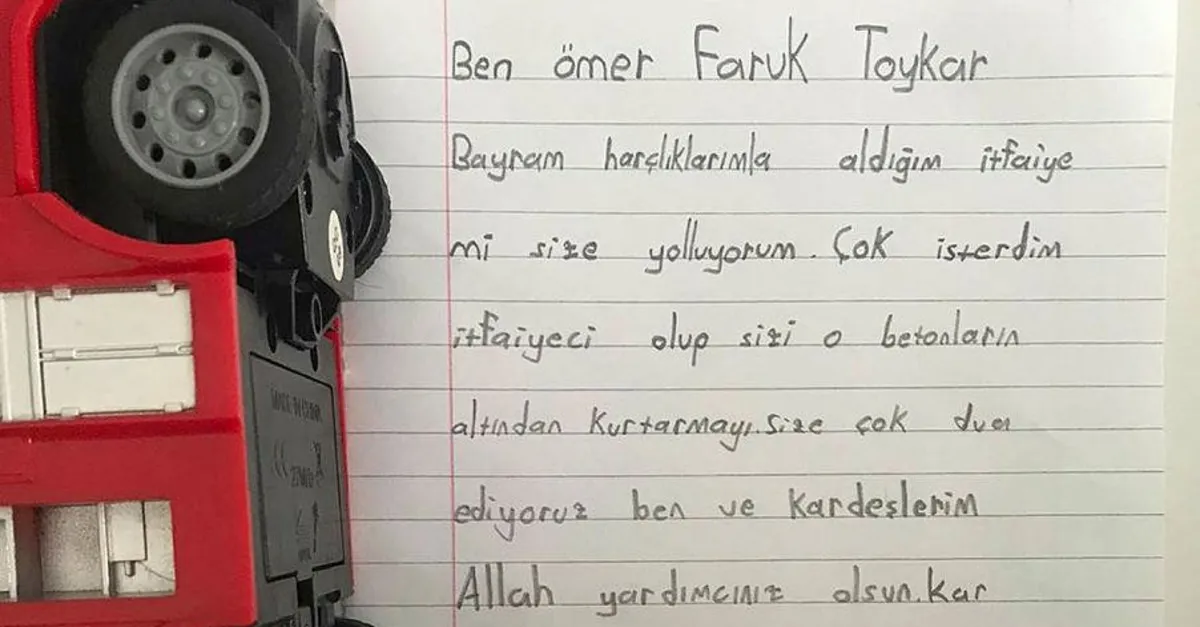 Ben ömer Faruk Toykar
Bayram harçlıklarımla aldığım itfaiye
mi size yolluyorum. Çok isterdim
itfaiyeci olup sizi o betonların
altından kurtarmayı. Size çok dua
ediyoruz ben ve kardeşlerim
Allah yardımcınız olsun. kar
MADE IN CHINA